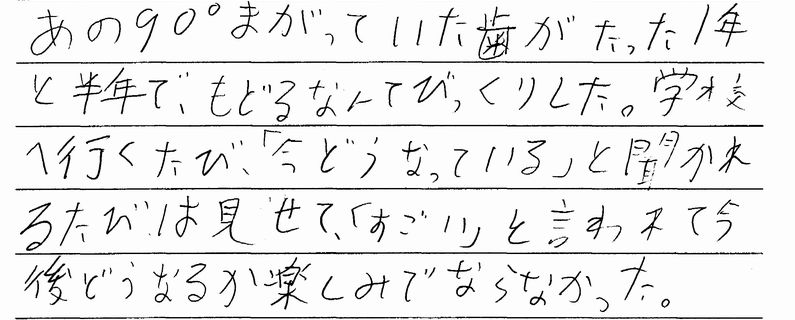 あの90°まがっていた歯がたった1年
と半年で、もどるなんてびっくりした。学校
へ行くたび、「今どうなっている」と聞かれ
るたびは見せて、「すごい」と言われて今
後どうなるか楽しみでならなかった。